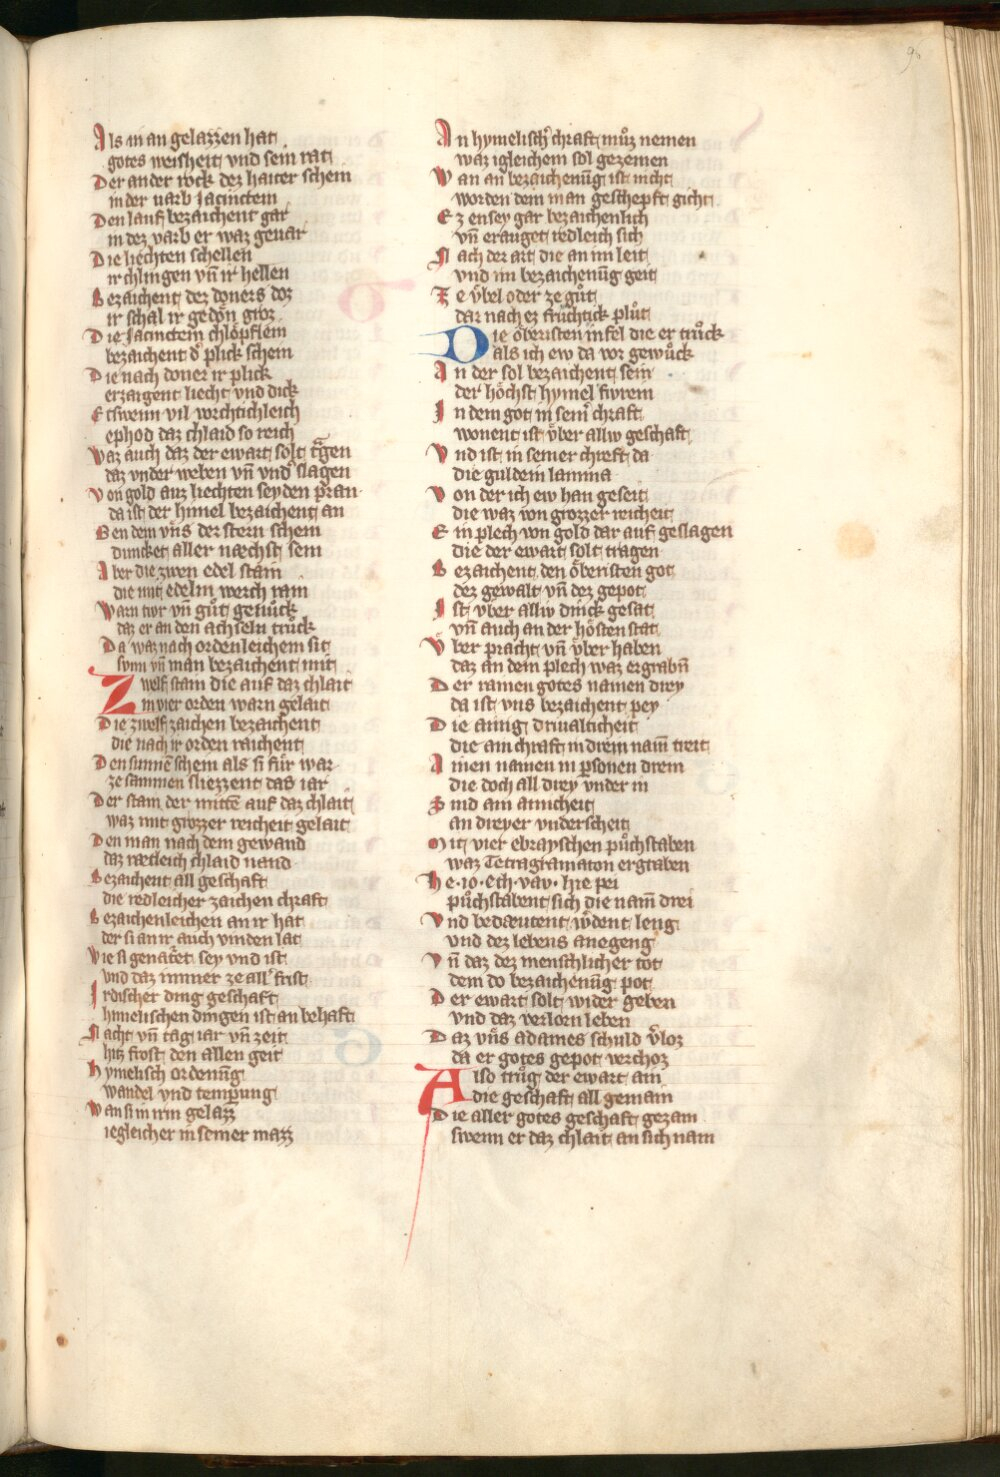 96
Als man gelazzen hat
gotes weisheit vnd sein rat
Der ander rock dez haiter schein
in der varb Jacinctein
Den lauf bezaichent gar
in dez varb er waz gevar
Die liechten schellen
ir chlingen vñ ir hellen
Bezaichent dez doners doz
ir schal ir gedon groz
Die Jacinctein chlöpflein
bezaichent d' plick schein
Die nach doner ir plick
erzaigent liecht vnd dick
Etswenn vil vorchtichleich
ephod daz chlaid so reich
Waz auch daz der ewart solt tragen
daz vnder weben vñ vnd' slagen
Von gold auz liechten seyden pran
da ist der himel bezaichent an
Bey dem vns der stern schein
duncket aller næchst sein
Aber die zwen edel stain
die mit edelm werch rain
Warn twr vñ gůt getůck
daz er an den achseln trůck
Da waz nach ordenleichem sit
svnn vñ man bezaichent mit
Zwelf stain die auf daz chlait
in vier orden warn gelait
Die zwelf zaichen bezaichent
die nach ir orden raichent
Den sunnē schein als si für war
ze sammen sliezzent daz iar
Der stain der mittē auf daz chlait
waz mit grozzer reicheit gelait
Den man nach dem gewand
daz rætleich chlaid nand
Bezaichent all geschaft
die redleicher zaichen chraft
Bezaichenleichen an ir hat
der si an ir auch vinden lat
Wie si genatēt sey vnd ist
vnd daz immer ze all' frist
Irdischer ding geschaft
himelischen dingen ist an behaft
Nacht vñ tag iar vñ zeit
hitz frost den allen geit
Hymelisch ordenūg
wandel vnd temperung
Wan si in irm gelazz
iegleicher in seiner mazz
An hymelisch' chraft můz nemen
waz igleichem sol gezemen
Wan an bezaichenūg ist nicht
worden dem man geschepft gicht
Ez ensey gar bezaichenlich
vñ erauget redleich sich
Nach der art die an im leit
vnd im bezaichenūg geit
Ze vbel oder ze gůt
dar nach ez fruchtick plůt
Die öberisten infel die er trůck
als ich ew da vor gewůck
An der sol bezaichent sein
der höchst hymel fivrein
In dem got in sein' chraft
wonent ist vber alliv geschaft
Vnd ist in seiner chreft da
die guldein lamina
Von der ich ew han geseit
die waz von grozzer reicheit
Ein plech von gold dar auf geslagen
die der ewart solt tragen
Bezaichent den öberisten got
dez gewalt vñ dez gepot
Ist vber alliv dinck gesat
vñ auch an der hösten stat
Vber pracht vñ vber haben
daz an dem plech waz ergrabn̄
Der ramen gotes namen drey
da ist vns bezaichent pey
Die ainig drivalticheit
die ain chraft in drein nam̄ treit
Ainen namen in personen drein
die doch all drey vnder in
Sind ain ainicheit
an dreyer vnderscheit
Mit vier ebrayschen půchstaben
waz Tetragramaton ergraben
He · io · Eth · vav · hie pei
půchstabent sich die nam̄ drei
Vnd bedæutent w'dent leng
vnd dez lebens anegeng
Vñ daz dez menschlicher tot
dem do bezaichenūg pot
Der ewart solt wider geben
vnd daz verlorn leben
Daz vns adames schuld v'loz
da er gotes gepot verchoz
Also trůg der ewart ain
die geschaft all gemain
Die aller gotes geschaft gezam
swenn er daz chlait an sich nam